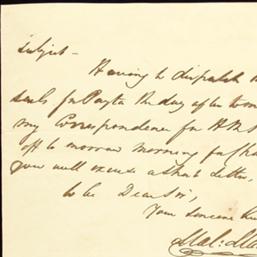 subject -
Having to dispatch
for Payta the day after tom
my Correspondence for HMS
off to morrow morning for
you will excuse a short Letter,
to be Dear Sir,
Your sincere